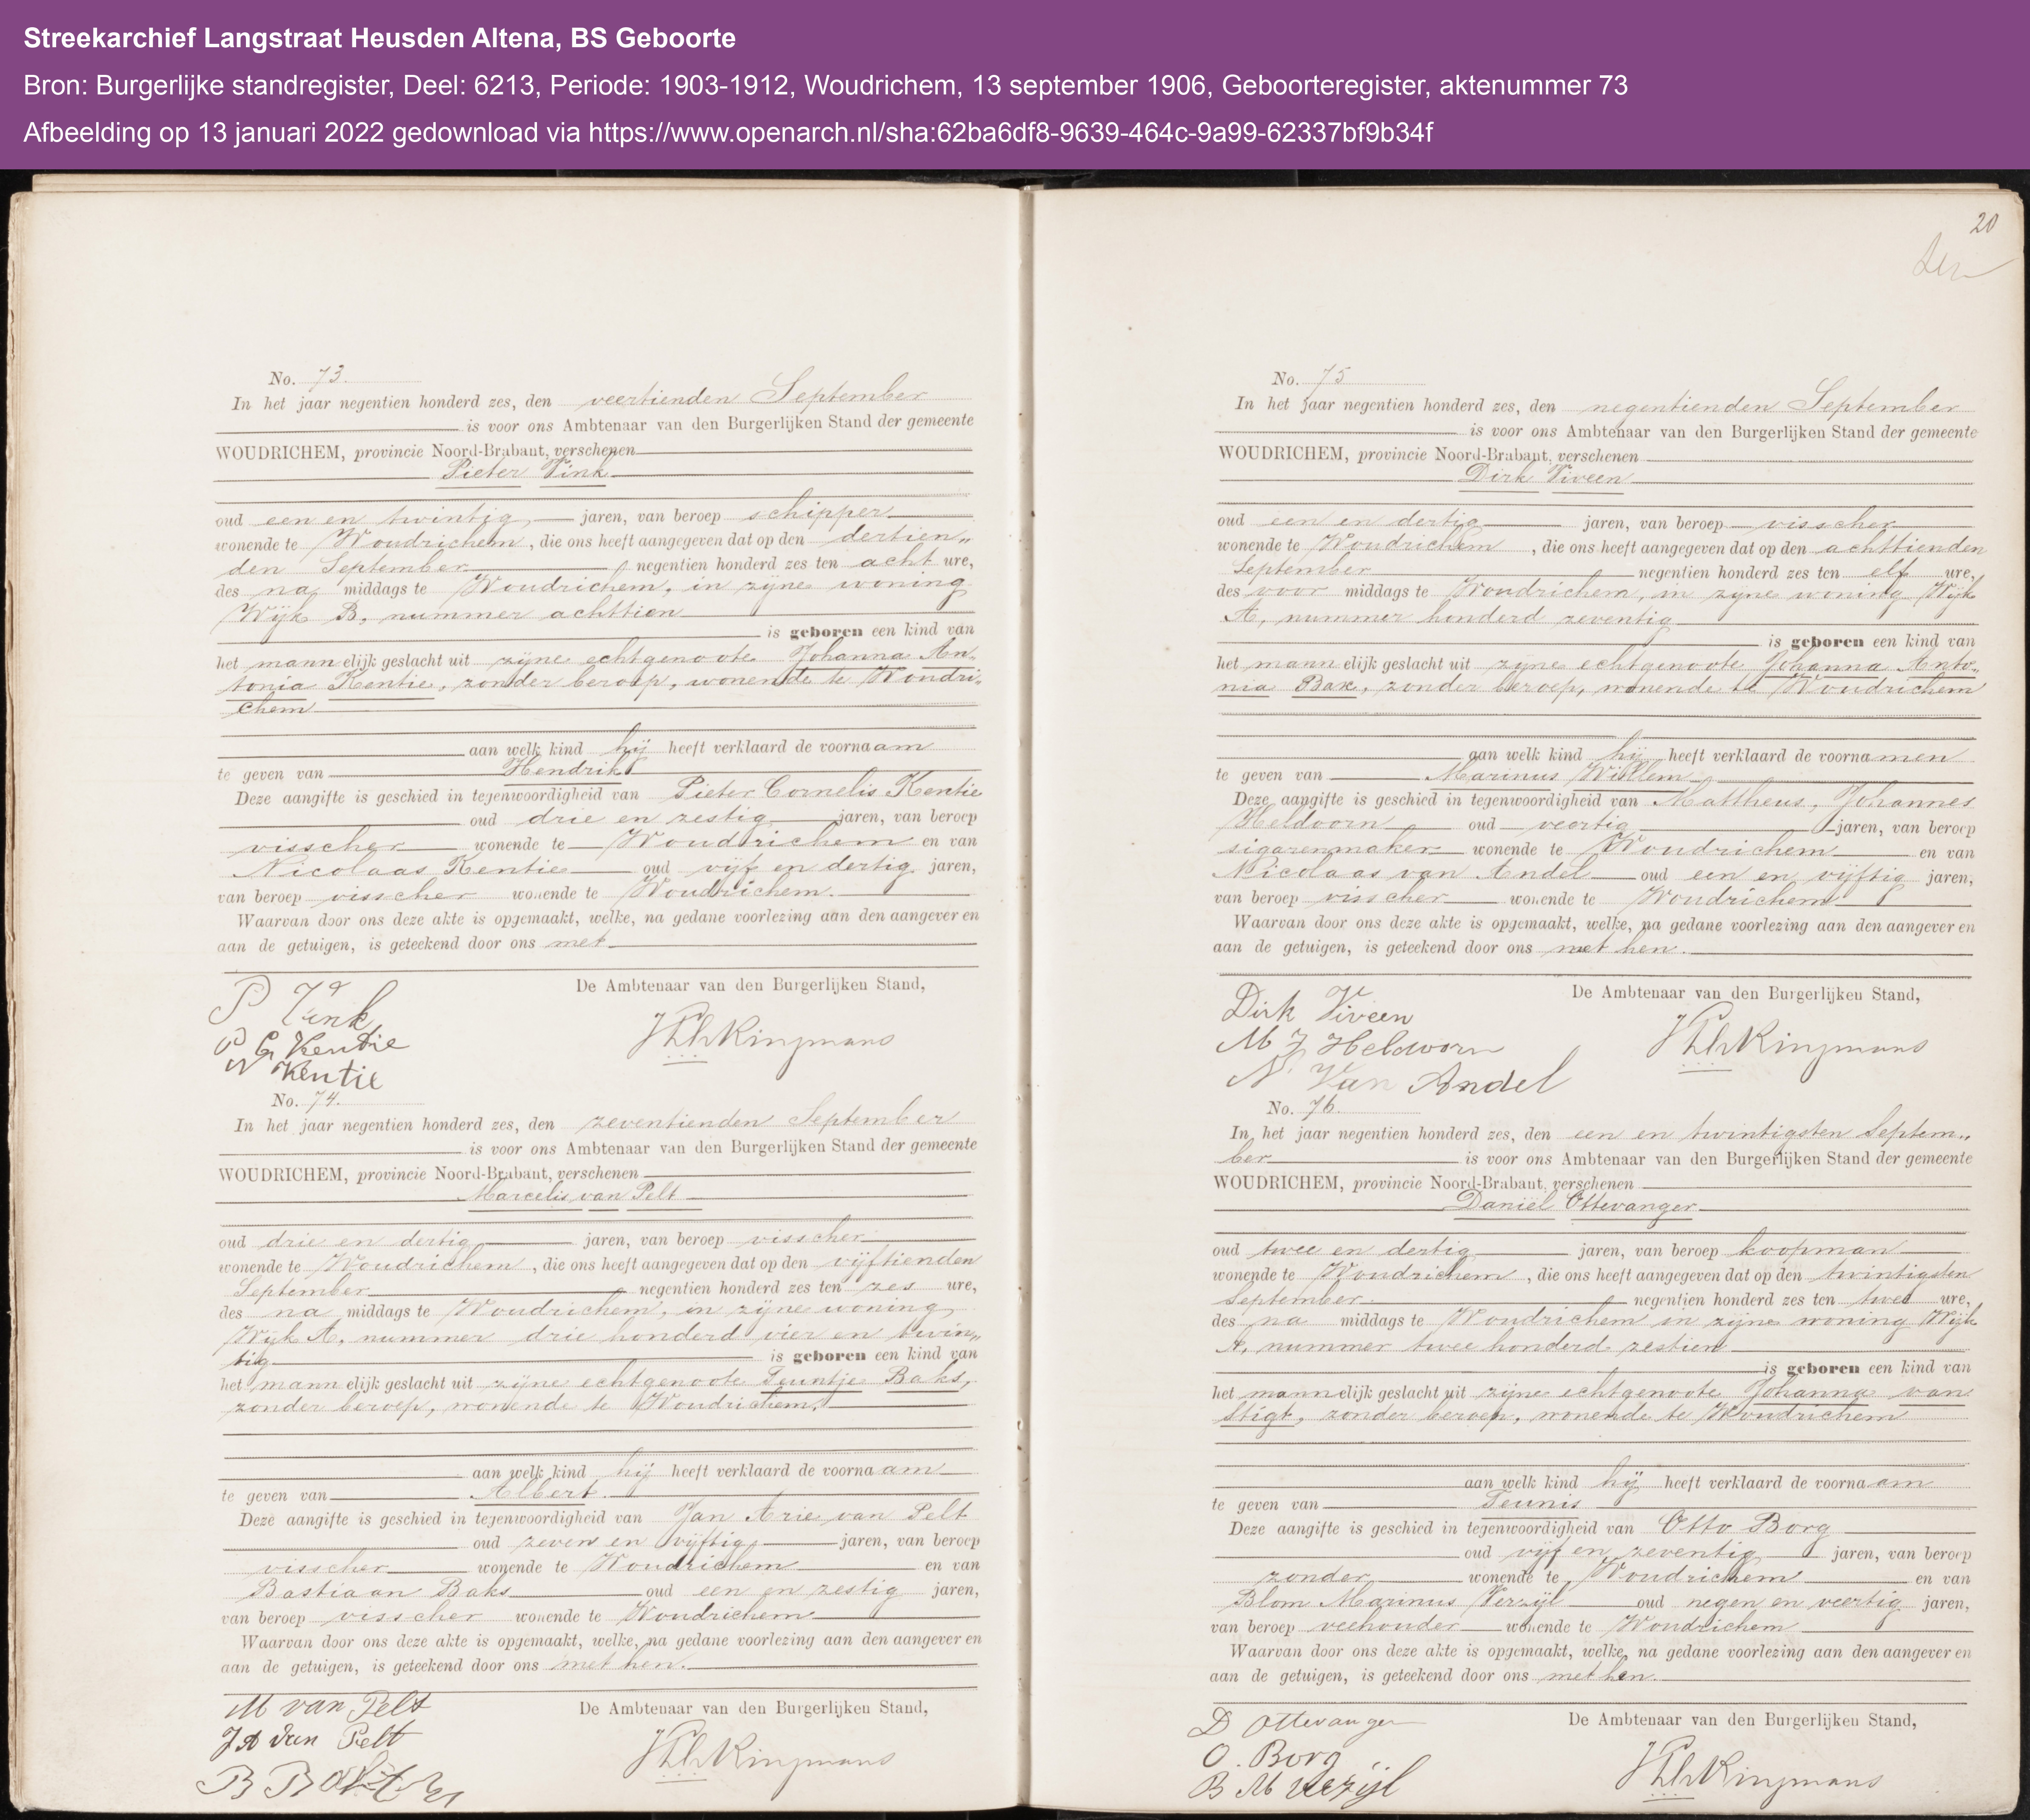 Streekarchief Langstraat Heusden Altena, BS Geboorte
Bron: Burgerlijke standregister, Deel: 6213, Periode: 1903-1912, Woudrichem, 13 september 1906, Geboorteregister, aktenummer 73
Afbeelding op 13 januari 2022 gedownload via https://www.openarch.nl/sha:62ba6df8-9639-464c-9a99-62337bf9b34f
No. 73.
In het jaar negentien honderd zes, den veertienden September
is voor ons Ambtenaar van den Burgerlijken Stand der gemeente
WOUDRICHEM, provincie Noord-Brabant, verschenen
Pieter Vink
oud een en twintig jaren, van beroep schipper
wonende te Woudrichem, die ons heeft aangegeven dat op den dertien„
den September negentien honderd zes ten acht ure,
des na middags te Woudrichem, in zijne woning
Wijk B, nummer achttien
is geboren een kind van
het mannelijk geslacht uit zijne echtgenoote Johanna An„
tonia Kentie, zonder beroep, wonende te Woudri„
chem
aan welk kind hij heeft verklaard de voornaam
te geven van Hendrik
Deze aangifte is geschied in tegenwoordigheid van Pieter Cornelis Kentie
oud drie en zestig jaren, van beroep
visscher wonende te Woudrichem en van
Nicolaas Kentie oud vijf en dertig jaren,
van beroep visscher wonende te Woudrichem.
Waarvan door ons deze akte is opgemaakt, welke, na gedane voorlezing aan den aangever en
aan de getuigen, is geteekend door ons met
De Ambtenaar van den Burgerlijken Stand,
P Vink
P C Kentie
N Kentie
No. 74.
In het jaar negentien honderd zes, den zeventienden September
is voor ons Ambtenaar van den Burgerlijken Stand der gemeente
WOUDRICHEM, provincie Noord-Brabant, verschenen
Marcelis van Pelt
oud drie en dertig jaren, van beroep visscher
wonende te Woudrichem, die ons heeft aangegeven dat op den vijftienden
September negentien honderd zes ten zes ure,
des na middags te Woudrichem, in zijne woning
Wijk A, nummer drie honderd vier en twin„
tig is geboren een kind van
het mannelijk geslacht uit zijne echtgenoote Teuntje Baks,
zonder beroep, wonende te Woudrichem,
aan welk kind hij heeft verklaard de voornaam
te geven van Albert.
Deze aangifte is geschied in tegenwoordigheid van Jan Arie van Pelt
oud zeven en vijftig jaren, van beroep
visscher wonende te Woudrichem en van
Bastiaan Baks oud een en zestig jaren,
van beroep visscher wonende te Woudrichem
Waarvan door ons deze akte is opgemaakt, welke, na gedane voorlezing aan den aangever en
aan de getuigen, is geteekend door ons met hen.
De Ambtenaar van den Burgerlijken Stand,
M van Pelt
J A van Pelt
20
No. 75
In het jaar negentien honderd zes, den negentienden September
is voor ons Ambtenaar van den Burgerlijken Stand der gemeente
WOUDRICHEM, provincie Noord-Brabant, verschenen
Dirk Viveen
oud een en dertig jaren, van beroep visscher
wonende te Woudrichem, die ons heeft aangegeven dat op den achttienden
September negentien honderd zes ten elf ure,
des voor middags te Woudrichem, in zijne woning Wijk
A, nummer honderd zeventig
is geboren een kind van
het mannelijk geslacht uit zijne echtgenoote Johanna Anto„
nia Bax, zonder beroep, wonende te Woudrichem
aan welk kind hij heeft verklaard de voornamen
te geven van Marinus Willem
Deze aangifte is geschied in tegenwoordigheid van Mattheus, Johannes
Heldoorn oud veertig jaren, van beroep
sigarenmaker wonende te Woudrichem en van
Nicolaas van Andel oud een en vijftig jaren,
van beroep visscher wonende te Woudrichem
Waarvan door ons deze akte is opgemaakt, welke, na gedane voorlezing aan den aangever en
aan de getuigen, is geteekend door ons met hen.
De Ambtenaar van den Burgerlijken Stand,
Dirk Viveen
M J Heldoorn
N. Van Andel
No. 76.
In het jaar negentien honderd zes, den een en twintigsten Septem„
ber is voor ons Ambtenaar van den Burgerlijken Stand der gemeente
WOUDRICHEM, provincie Noord-Brabant, verschenen
Daniël Ottevanger
oud twee en dertig jaren, van beroep koopman
wonende te Woudrichem, die ons heeft aangegeven dat op den twintigsten
September negentien honderd zes ten twee ure,
des na middags te Woudrichem in zijne woning Wijk
A, nummer twee honderd zestien
is geboren een kind van
het mannelijk geslacht uit zijne echtgenoote Johanna van
Stigt, zonder beroep, wonende te Woudrichem
aan welk kind hij heeft verklaard de voornaam
te geven van Teunis
Deze aangifte is geschied in tegenwoordigheid van Otto Borg
oud vijf en zeventig jaren, van beroep
zonder wonende te Woudrichem en van
Blom Marinus Verzijl oud negen en veertig jaren,
van beroep veehouder wonende te Woudrichem
Waarvan door ons deze akte is opgemaakt, welke, na gedane voorlezing aan den aangever en
aan de getuigen, is geteekend door ons met hen.
De Ambtenaar van den Burgerlijken Stand,
D Ottevanger
O. Borg
B M Verzijl